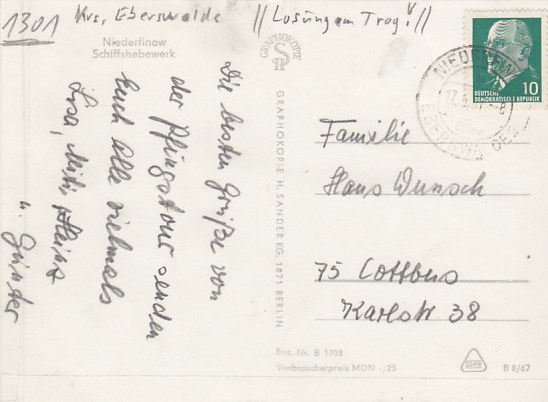 1301 Krs. Eberswalde // Losung am Trog! //
Niederfinow
Schiffshebewerk
Die besten Grüße von
der Pfingsttour senden
Euch Alle vielmals
Heinz
u. Günter
GRAPHOKOPIE
GRAPHOKOPIE H. SANDER KG. 1071 BERLIN
DEUTSCHE
DEMOKRATISCHE REPUBLIK
10
EBERSWALDE
Familie
Hans Wunsch
75 Cottbus
Karlstr 38
Best.-Nr. B 1705
Verbraucherpreis MDN -,25
B 8/67